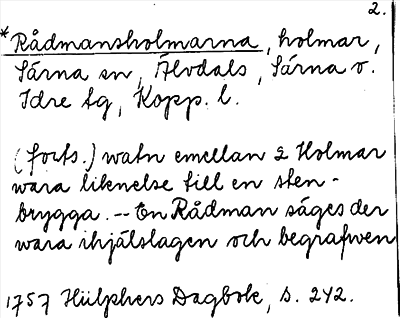 2.
*Rådmansholmarna, holmar,
Särna sn, Älvdals, Särna o.
Idre tg, Kopp. l.
(forts.) watn emellan 2 Holmar
wara liknelse till en sten-
brygga. -- En Rådman säges der
wara ihjälslagen och begrafwen
1757 Hülphers Dagbok, s. 242.